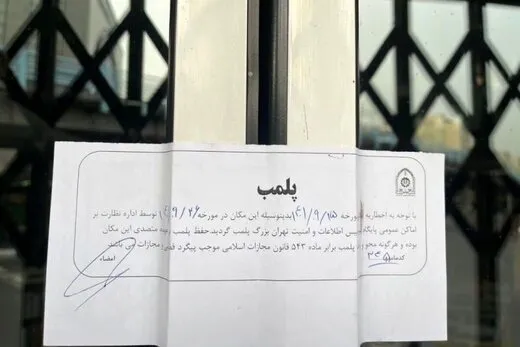 پلمب
با توجه به اخطاریه مورخه ۱۴۰۱/۹/۲۵ بدینوسیله این مکان در مورخه ۹/۲۶ توسط اداره نظارت بر
اماکن عمومی پایگاه پلیس اطلاعات و امنیت تهران بزرگ گردید، حفظ پلمب بعهده متصدی این مکان
بوده و هرگونه محو پلمب برابر ماده ۵۴۳ قانون مجازات اسلامی موجب پیگرد مجازات می باشد.
کدمامور ۲۴۵ امضاء